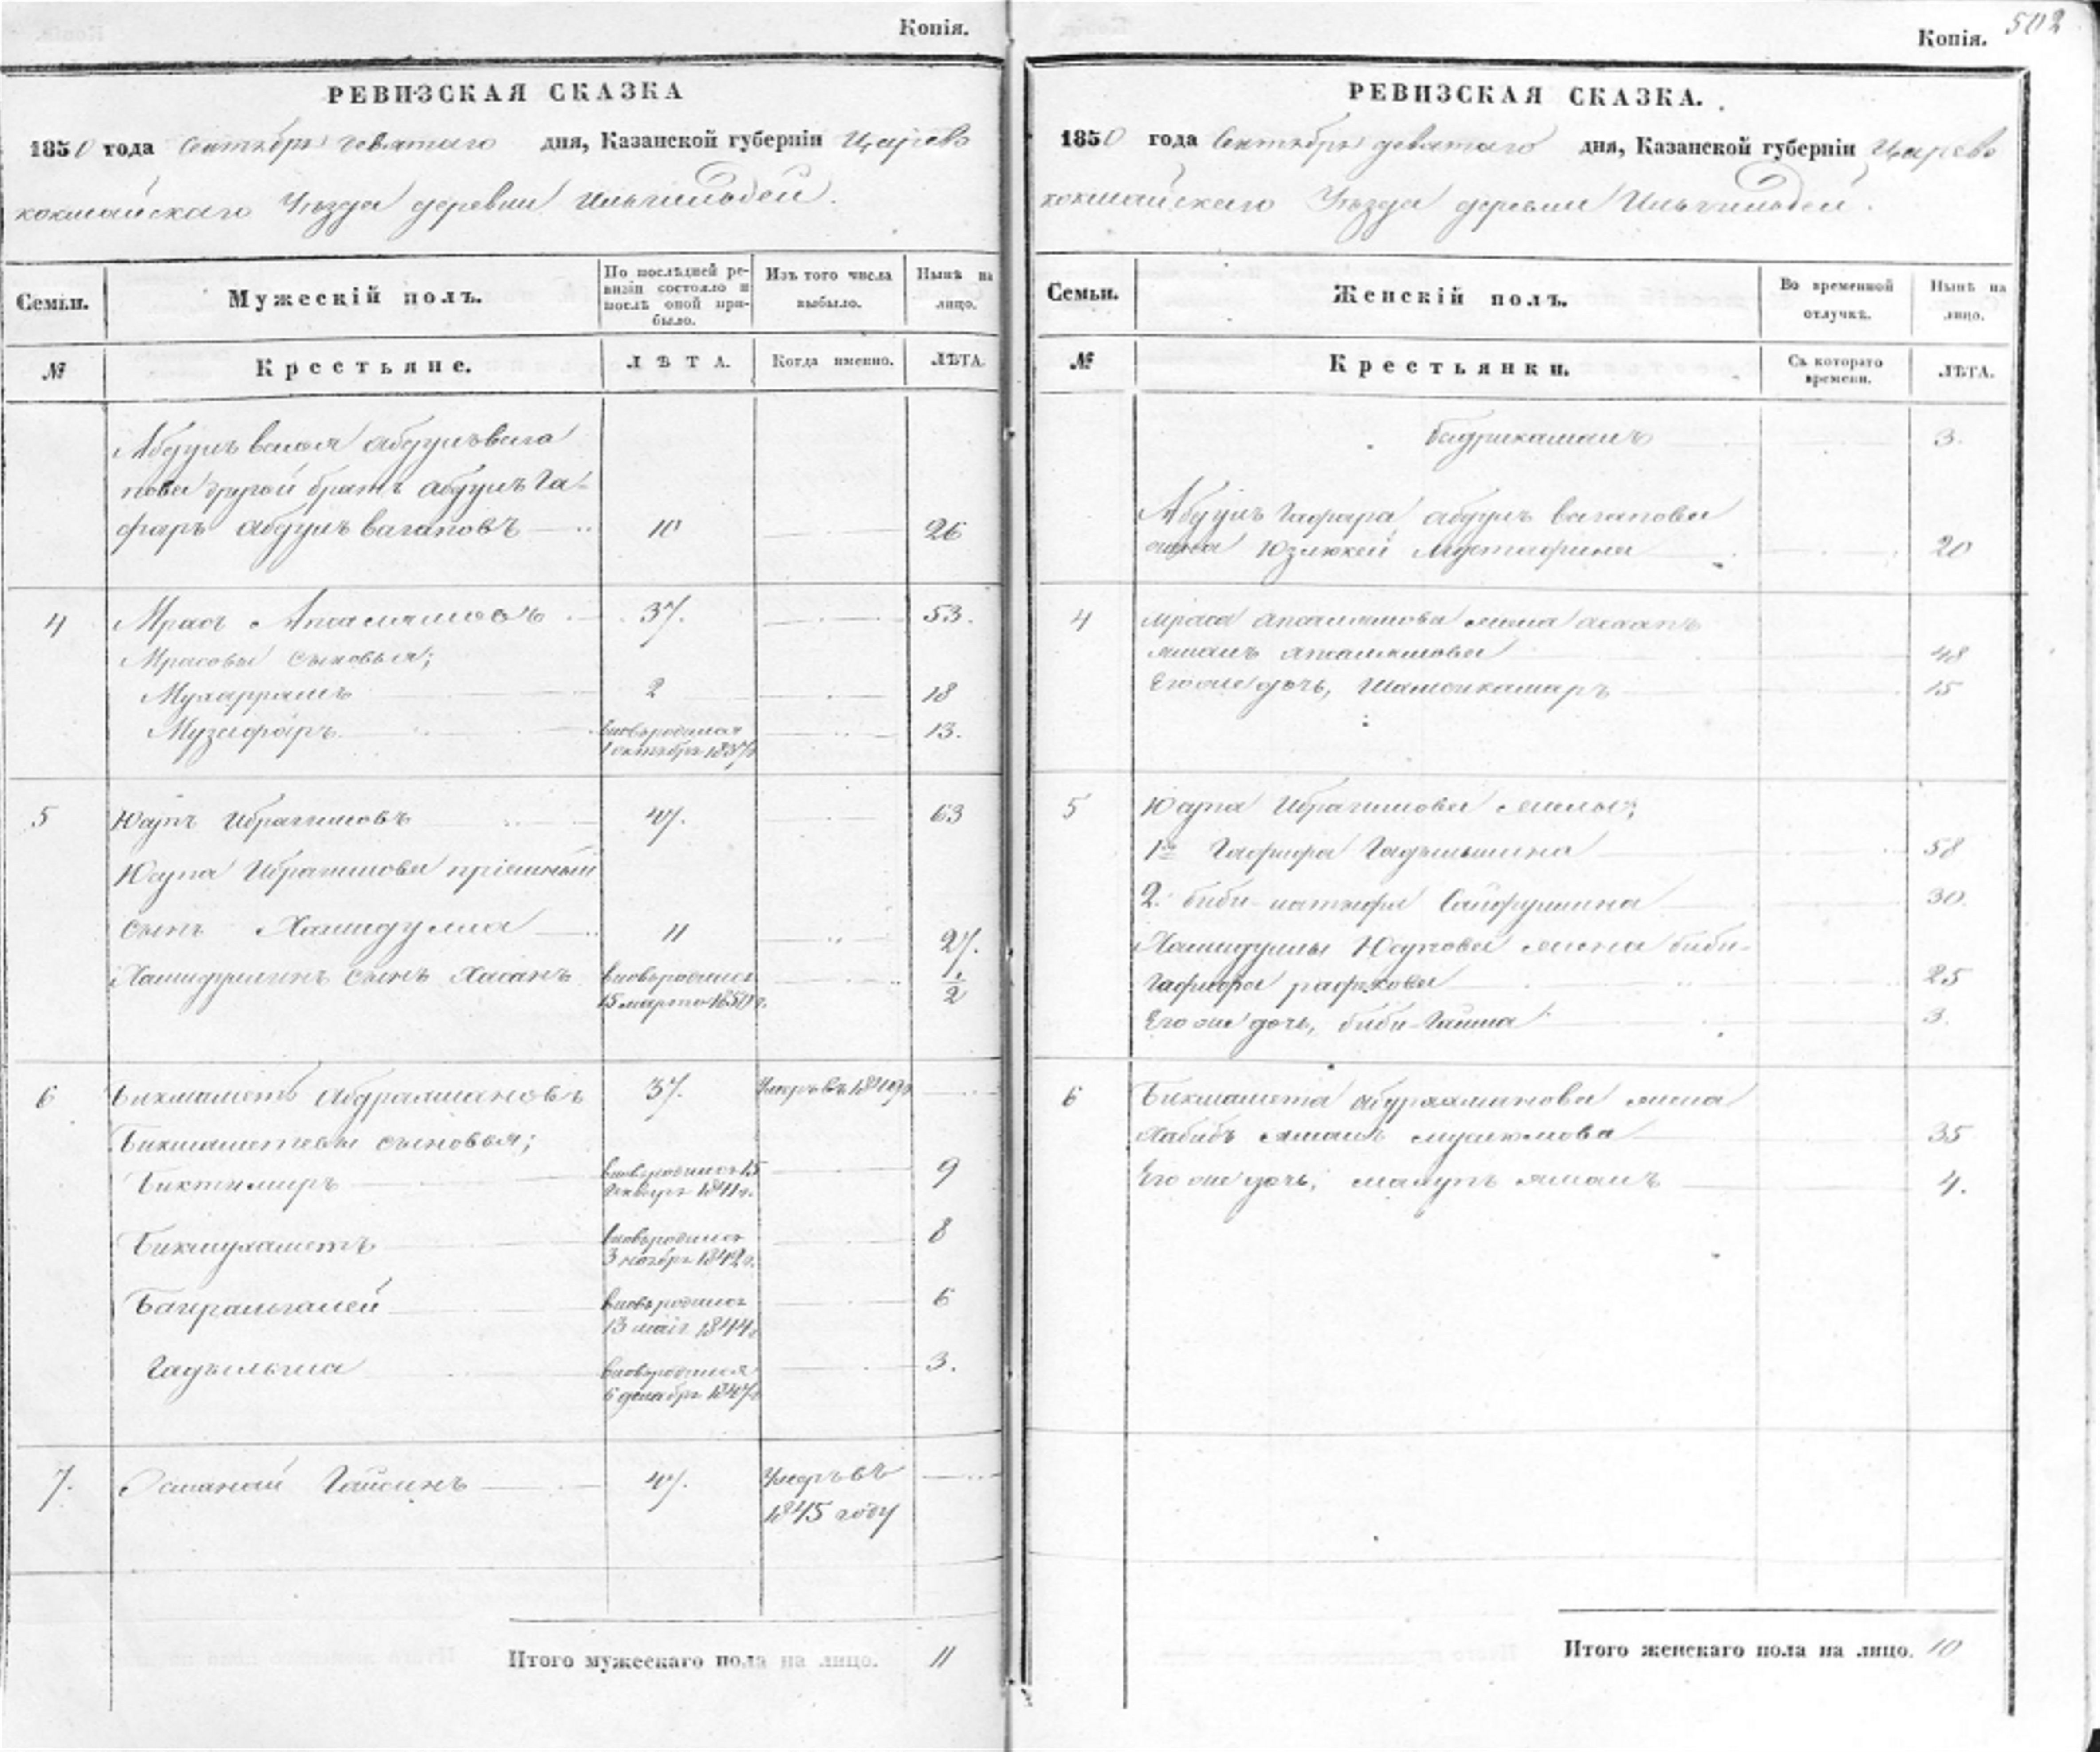 Копія.
РЕВИЗСКАЯ СКАЗКА
1850 года Сентября девятаго дня, Казанской губерніи Царево
кокшайскаго Уѣзда деревни Ильчильдей.
Семьи.
Мужескій полъ.
По послѣдней ре-
визіи состояло и
послѣ оной при-
было.
Изъ того числа
выбыло.
Нынѣ на
лицо.
№
Крестьяне.
ЛѢТА.
Когда именно.
ЛѢТА.
Абдулъ абдулъвага
пова другой братъ абдулъ Га-
фаръ абдулъ вагаповъ 10 26
4 Мрасъ Апсалямовъ 37. 53.
Мрасовы сыновья;
Мухаррямъ 2 18
Музафаръ вновьродился
1 октября 1837г 13.
5 Юсупъ Ибрагимовъ 47. 63
Юсупа Ибрагимова пріемный
сынъ Хамидулла 11 27.
Хамидуллинъ сынъ Хасанъ вновьродился
15 марта 1850 г. 1/2
6 Бикмаметъ Абдрахмановъ 37. Умеръ въ 1849г
Бикмаметевы сыновья;
Биктимиръ вновьродился 15
1841г. 9
Бикмухаметъ вновьродился
3 ноября 1842г. 8
Баграмъгалей вновьродился
13 мая 1844г 6
Гадыльша вновьродился
6 декабря 1847г 3.
7. Османъ Гайсинъ 47. Умеръ въ
1845 году
Итого мужескаго пола на лицо. 11
502
Копія.
РЕВИЗСКАЯ СКАЗКА.
1850 года Сентября девятаго дня, Казанской губерніи Царево
кокшайскаго Уѣзда деревни Ильчильдей.
Семьи.
Женскій полъ.
Во временной
отлучкѣ.
Нынѣ на
лицо.
№
Крестьянки.
Съ котораго
времени.
ЛѢТА.
Бадрикамалъ 3.
Абдулъ Гафара абдулъ вагапова
жена Мустафина 20
4 Мраса Апсалямова жена
Апсалямова 48
Его же дочь, Шамсикамаръ 15
5 Юсупа Ибрагимова жены;
1я Гафифа Гадыльшина 58
2. Биби Сайфуллина 30.
Хамидуллы Юсупова жена биби-
Гафифа рафикова 25
Его же дочь, биби-Гайша 3.
6 Бикмамета абдрахманова жена
Хабибъ 35
Его же дочь, 4.
Итого женскаго пола на лицо. 10